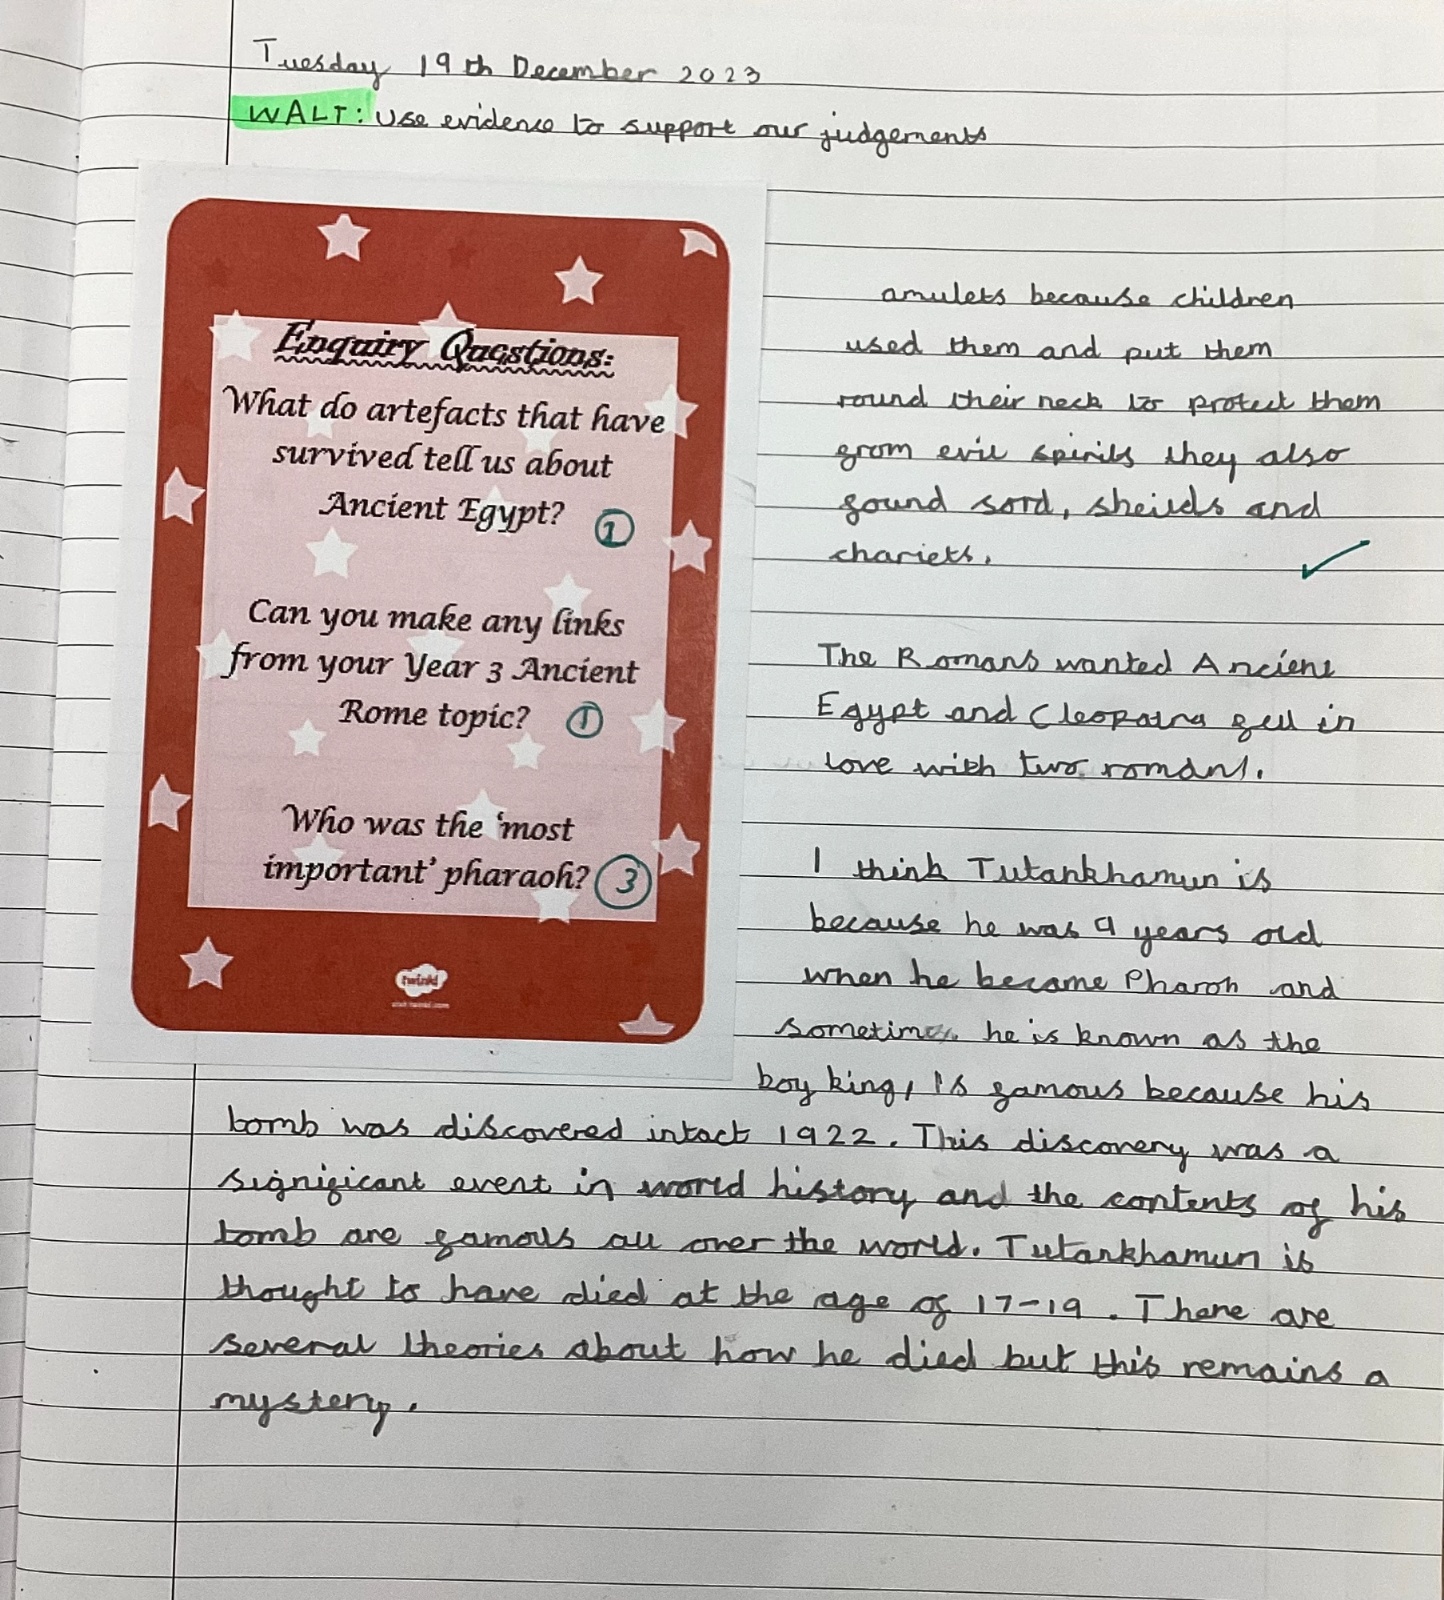 Tuesday 19th December 2023
WALT: Use evidence to support our judgements
Enquiry Questions:
What do artefacts that have
survived tell us about
Ancient Egypt? 1
Can you make any links
from your Year 3 Ancient
Rome topic? 1
Who was the 'most
important' pharaoh? 3
twinkl
visit twinkl.com
amulets because children
used them and put them
round their neck to protect them
from evil spirits they also
found sord, sheilds and
chariets.
The Romans wanted Ancient
Egypt and Cleopatra fell in
love with two romans.
I think Tutankhamun is
because he was 9 years old
when he became Pharoh and
sometimes he is known as the
boy king, is famous because his
tomb was discovered intact 1922. This discovery was a
significant event in world history and the contents of his
tomb are famous all over the world. Tutankhamun is
thought to have died at the age of 17-19. There are
several theories about how he died but this remains a
mystery.